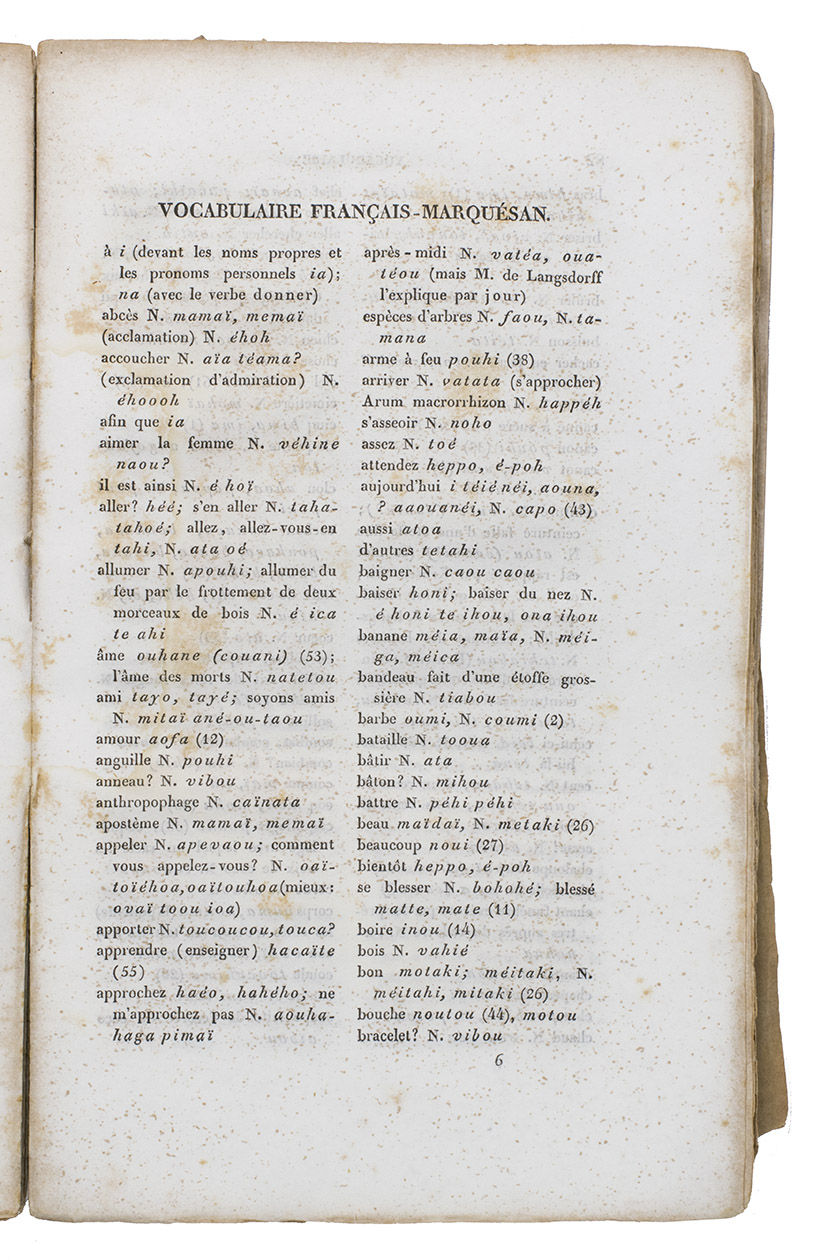 VOCABULAIRE FRANÇAIS-MARQUÉSAN.
à i (devant les noms propres et
les pronoms personnels ia);
na (avec le verbe donner)
abcès N. mamaï, memaï
(acclamation) N. éhoh
accoucher N. aïa téama?
(exclamation d'admiration) N.
éhoooh
afin que ia
aimer la femme N. véhine
naou?
il est ainsi N. é hoï
aller? héé; s'en aller N. taha-
tahoé; allez, allez-vous-en
tahi, N. ata oé
allumer N. apouhi; allumer du
feu par le frottement de deux
morceaux de bois N. é ica
te ahi
âme ouhane (couani) (53);
l'âme des morts N. natetou
ami tayo, tayé; soyons amis
N. mitaï ané-ou-taou
amour aofa (12)
anguille N. pouhi
anneau? N. vibou
anthropophage N. caïnata
apostème N. mamaï, memaï
appeler N. apevaou; comment
vous appelez-vous? N. oaï-
toïéhoa, oaïtouhoa (mieux:
ovaï toou ioa)
apporter N. toucoucou, touca?
apprendre (enseigner) hacaïte
(55)
approchez haéo, hahého; ne
m'approchez pas N. aouha-
haga pimaï
après-midi N. vatéa, oua-
téou (mais M. de Langsdorff
l'explique par jour)
espèces d'arbres N. faou, N. ta-
mana
arme à feu pouhi (38)
arriver N. vatata (s'approcher)
Arum macrorrhizon N. happéh
s'asseoir N. noho
assez N. toé
attendez heppo, é-poh
aujourd'hui i téié néi, aouna,
? aaouanéi, N. capo (43)
aussi atoa
d'autres tetahi
baigner N. caou caou
baiser honi; baîser du nez N.
é honi te ihou, ona ihou
banane méia, maïa, N. méi-
ga, méica
bandeau fait d'une étoffe gros-
sière N. tiabou
barbe oumi, N. coumi (2)
bataille N. tooua
bâtir N. ata
bâton? N. mihou
battre N. péhi péhi
beau maïdaï, N. metaki (26)
beaucoup noui (27)
bientôt heppo, é-poh
se blesser N. bohohé; blessé
matte, mate (11)
boire inou (14)
bois N. vahié
bon motaki; méitaki, N.
méitahi, mitaki (26)
bouche noutou (44), motou
bracelet? N. vibou
6